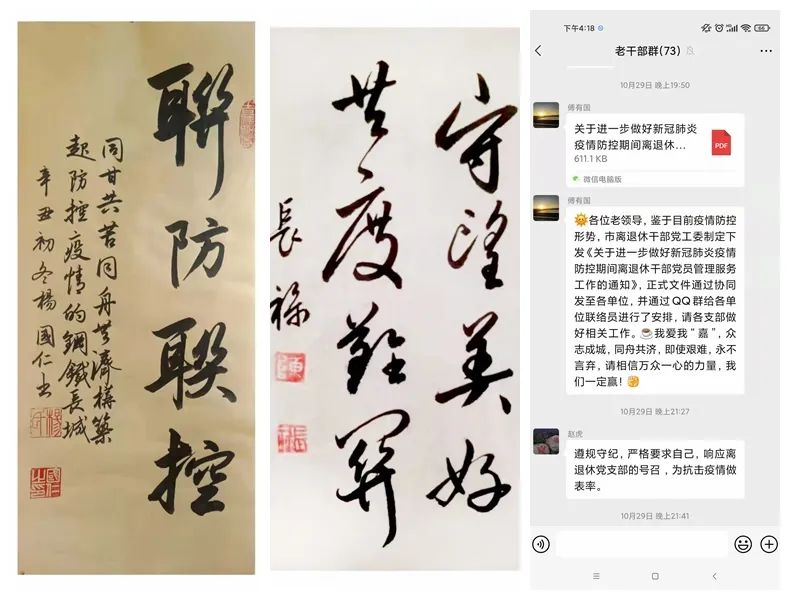 聯防聯控
同甘共苦同舟共濟構築
起防控疫情的鋼鐵長城
辛丑初冬楊國仁书
守望美好
共度難關
長祿
下午4:18
66
老干部群(73)
10月29日 晚上19:50
傅有国
关于进一步做好新冠肺炎
疫情防控期间离退休...
611.1 KB
PDF
微信电脑版
傅有国
各位老领导，鉴于目前疫情防控
形势，市离退休干部党工委制定下
发《关于进一步做好新冠肺炎疫情
防控期间离退休干部党员管理服务
工作的通知》，正式文件通过协同
发至各单位，并通过QQ群给各单
位联络员进行了安排，请各支部做
好相关工作。我爱我“嘉”，众
志成城，同舟共济，即使艰难，永不
言弃，请相信万众一心的力量，我
们一定赢！
10月29日 晚上21:27
赵虎
遵规守纪，严格要求自己，响应离
退休党支部的号召，为抗击疫情做
表率。
10月29日 晚上21:41